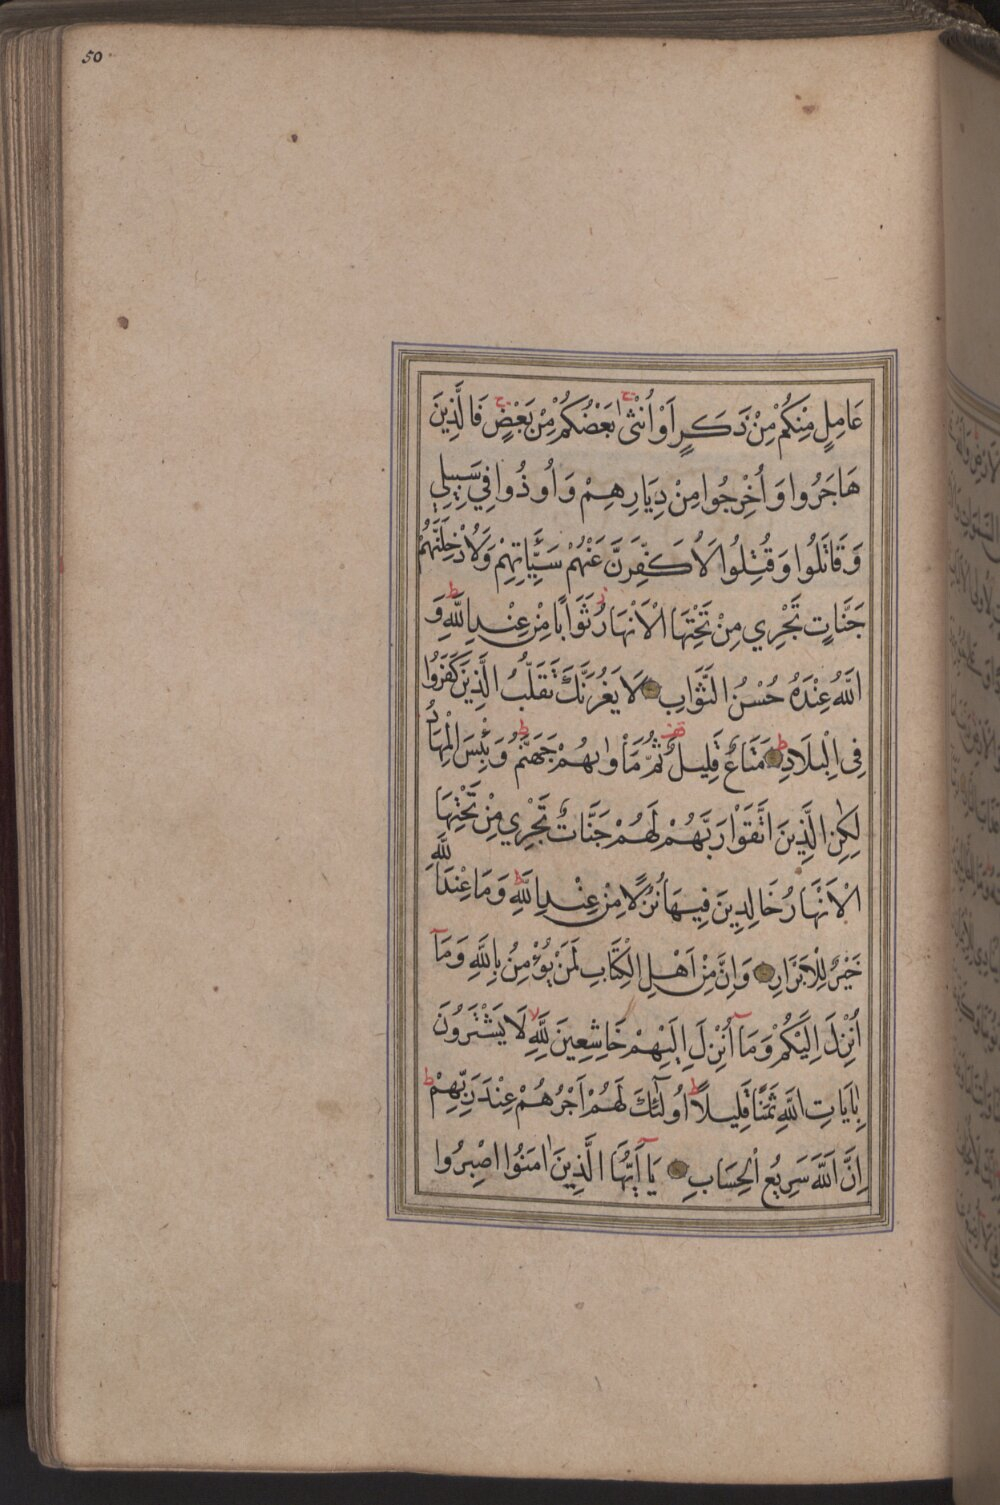 50
عَامِلٍ مِنْكُمْ مِنْ ذَكَرٍ اَوْ اُنْثٰى بَعْضُكُمْ مِنْ بَعْضٍ فَالَّذِينَ
هَاجَرُوا وَاُخْرِجُوا مِنْ دِيَارِهِمْ وَاُوذُوا فِي سَبِيلِي
وَقَاتَلُوا وَقُتِلُوا لَاُكَفِّرَنَّ عَنْهُمْ سَيِّاٰتِهِمْ وَلَاُدْخِلَنَّهُمْ
جَنَّاتٍ تَجْرِي مِنْ تَحْتِهَا الْاَنْهَارُ ثَوَابًا مِنْ عِنْدِ اللّٰهِ وَ
اللّٰهُ عِنْدَهُ حُسْنُ الثَّوَابِ لَا يَغُرَّنَّكَ تَقَلُّبُ الَّذِينَ كَفَرُوا
فِي الْبِلَادِ مَتَاعٌ قَلِيلٌ ثُمَّ مَاْوٰيهُمْ جَهَنَّمُ وَبِئْسَ الْمِهَادُ
لٰكِنِ الَّذِينَ اتَّقَوْا رَبَّهُمْ لَهُمْ جَنَّاتٌ تَجْرِي مِنْ تَحْتِهَا
الْاَنْهَارُ خَالِدِينَ فِيهَا نُزُلًا مِنْ عِنْدِ اللّٰهِ وَمَا عِنْدَ اللّٰهِ
خَيْرٌ لِلْاَبْرَارِ وَاِنَّ مِنْ اَهْلِ الْكِتَابِ لَمَنْ يُؤْمِنُ بِاللّٰهِ وَمَآ
اُنْزِلَ اِلَيْكُمْ وَمَآ اُنْزِلَ اِلَيْهِمْ خَاشِعِينَ لِلّٰهِ لَا يَشْتَرُونَ
بِاٰيَاتِ اللّٰهِ ثَمَنًا قَلِيلًا اُولٰٓئِكَ لَهُمْ اَجْرُهُمْ عِنْدَ رَبِّهِمْ
اِنَّ اللّٰهَ سَرِيعُ الْحِسَابِ يَآ اَيُّهَا الَّذِينَ اٰمَنُوا اصْبِرُوا